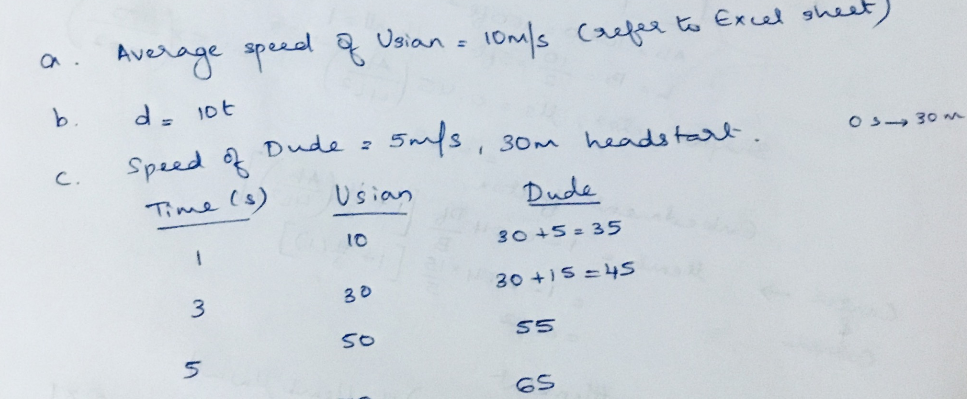 a. Average speed of Usian = 10m/s (refer to Excel sheet)
b. d = 10t
0 s → 30 m
c. Speed of Dude = 5m/s, 30m headstart.
Time (s) Usian Dude
1 10 30 + 5 = 35
3 30 30 + 15 = 45
5 50 55
65